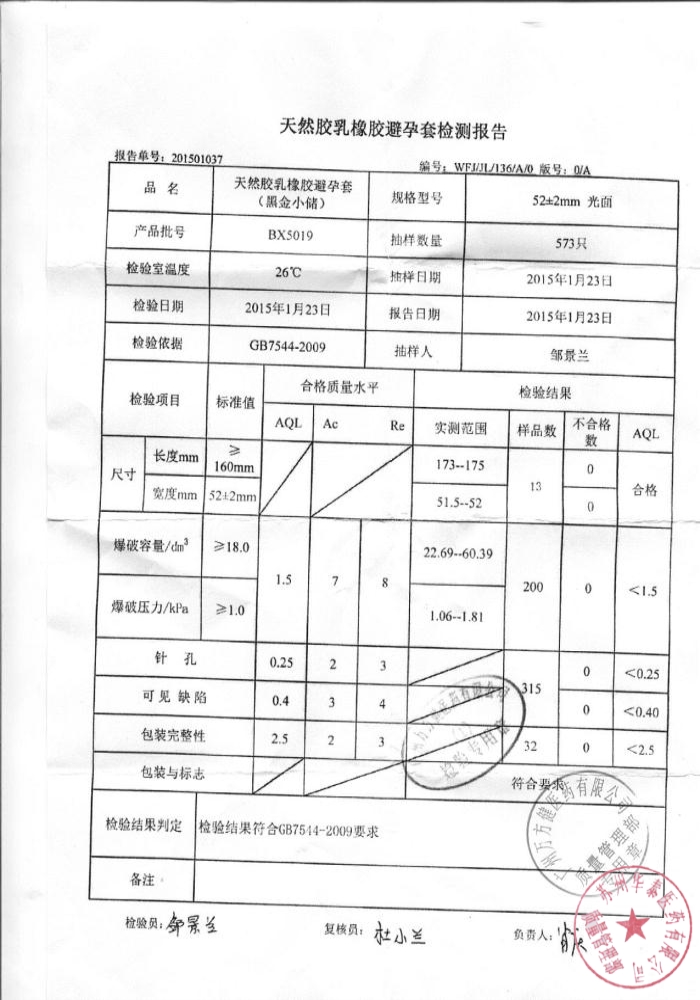 天然胶乳橡胶避孕套检测报告
报告单号：201501037 编号：WFJ/JL/136/A/0 版号：0/A
品 名 天然胶乳橡胶避孕套（黑金小储） 规格型号 52±2mm 光面
产品批号 BX5019 抽样数量 573只
检验室温度 26℃ 抽样日期 2015年1月23日
检验日期 2015年1月23日 报告日期 2015年1月23日
检验依据 GB7544-2009 抽样人 邹景兰
检验项目 标准值 合格质量水平 检验结果
AQL Ac Re 实测范围 样品数 不合格数 AQL
尺寸 长度mm ≥160mm 173--175 13 0 合格
宽度mm 52±2mm 51.5--52 0
爆破容量/dm³ ≥18.0 1.5 7 8 22.69--60.39 200 0 <1.5
爆破压力/kPa ≥1.0 1.06--1.81
针 孔 0.25 2 3 315 0 <0.25
可见缺陷 0.4 3 4 0 <0.40
包装完整性 2.5 2 3 32 0 <2.5
包装与标志 符合要求
检验结果判定 检验结果符合GB7544-2009要求
备注
检验员：邹景兰 复核员：杜小兰 负责人：
医药有限公司
检验专用章
万方健医药有限公司
质量管理部
专用章
苏州华泰医药有限公司
质量管理